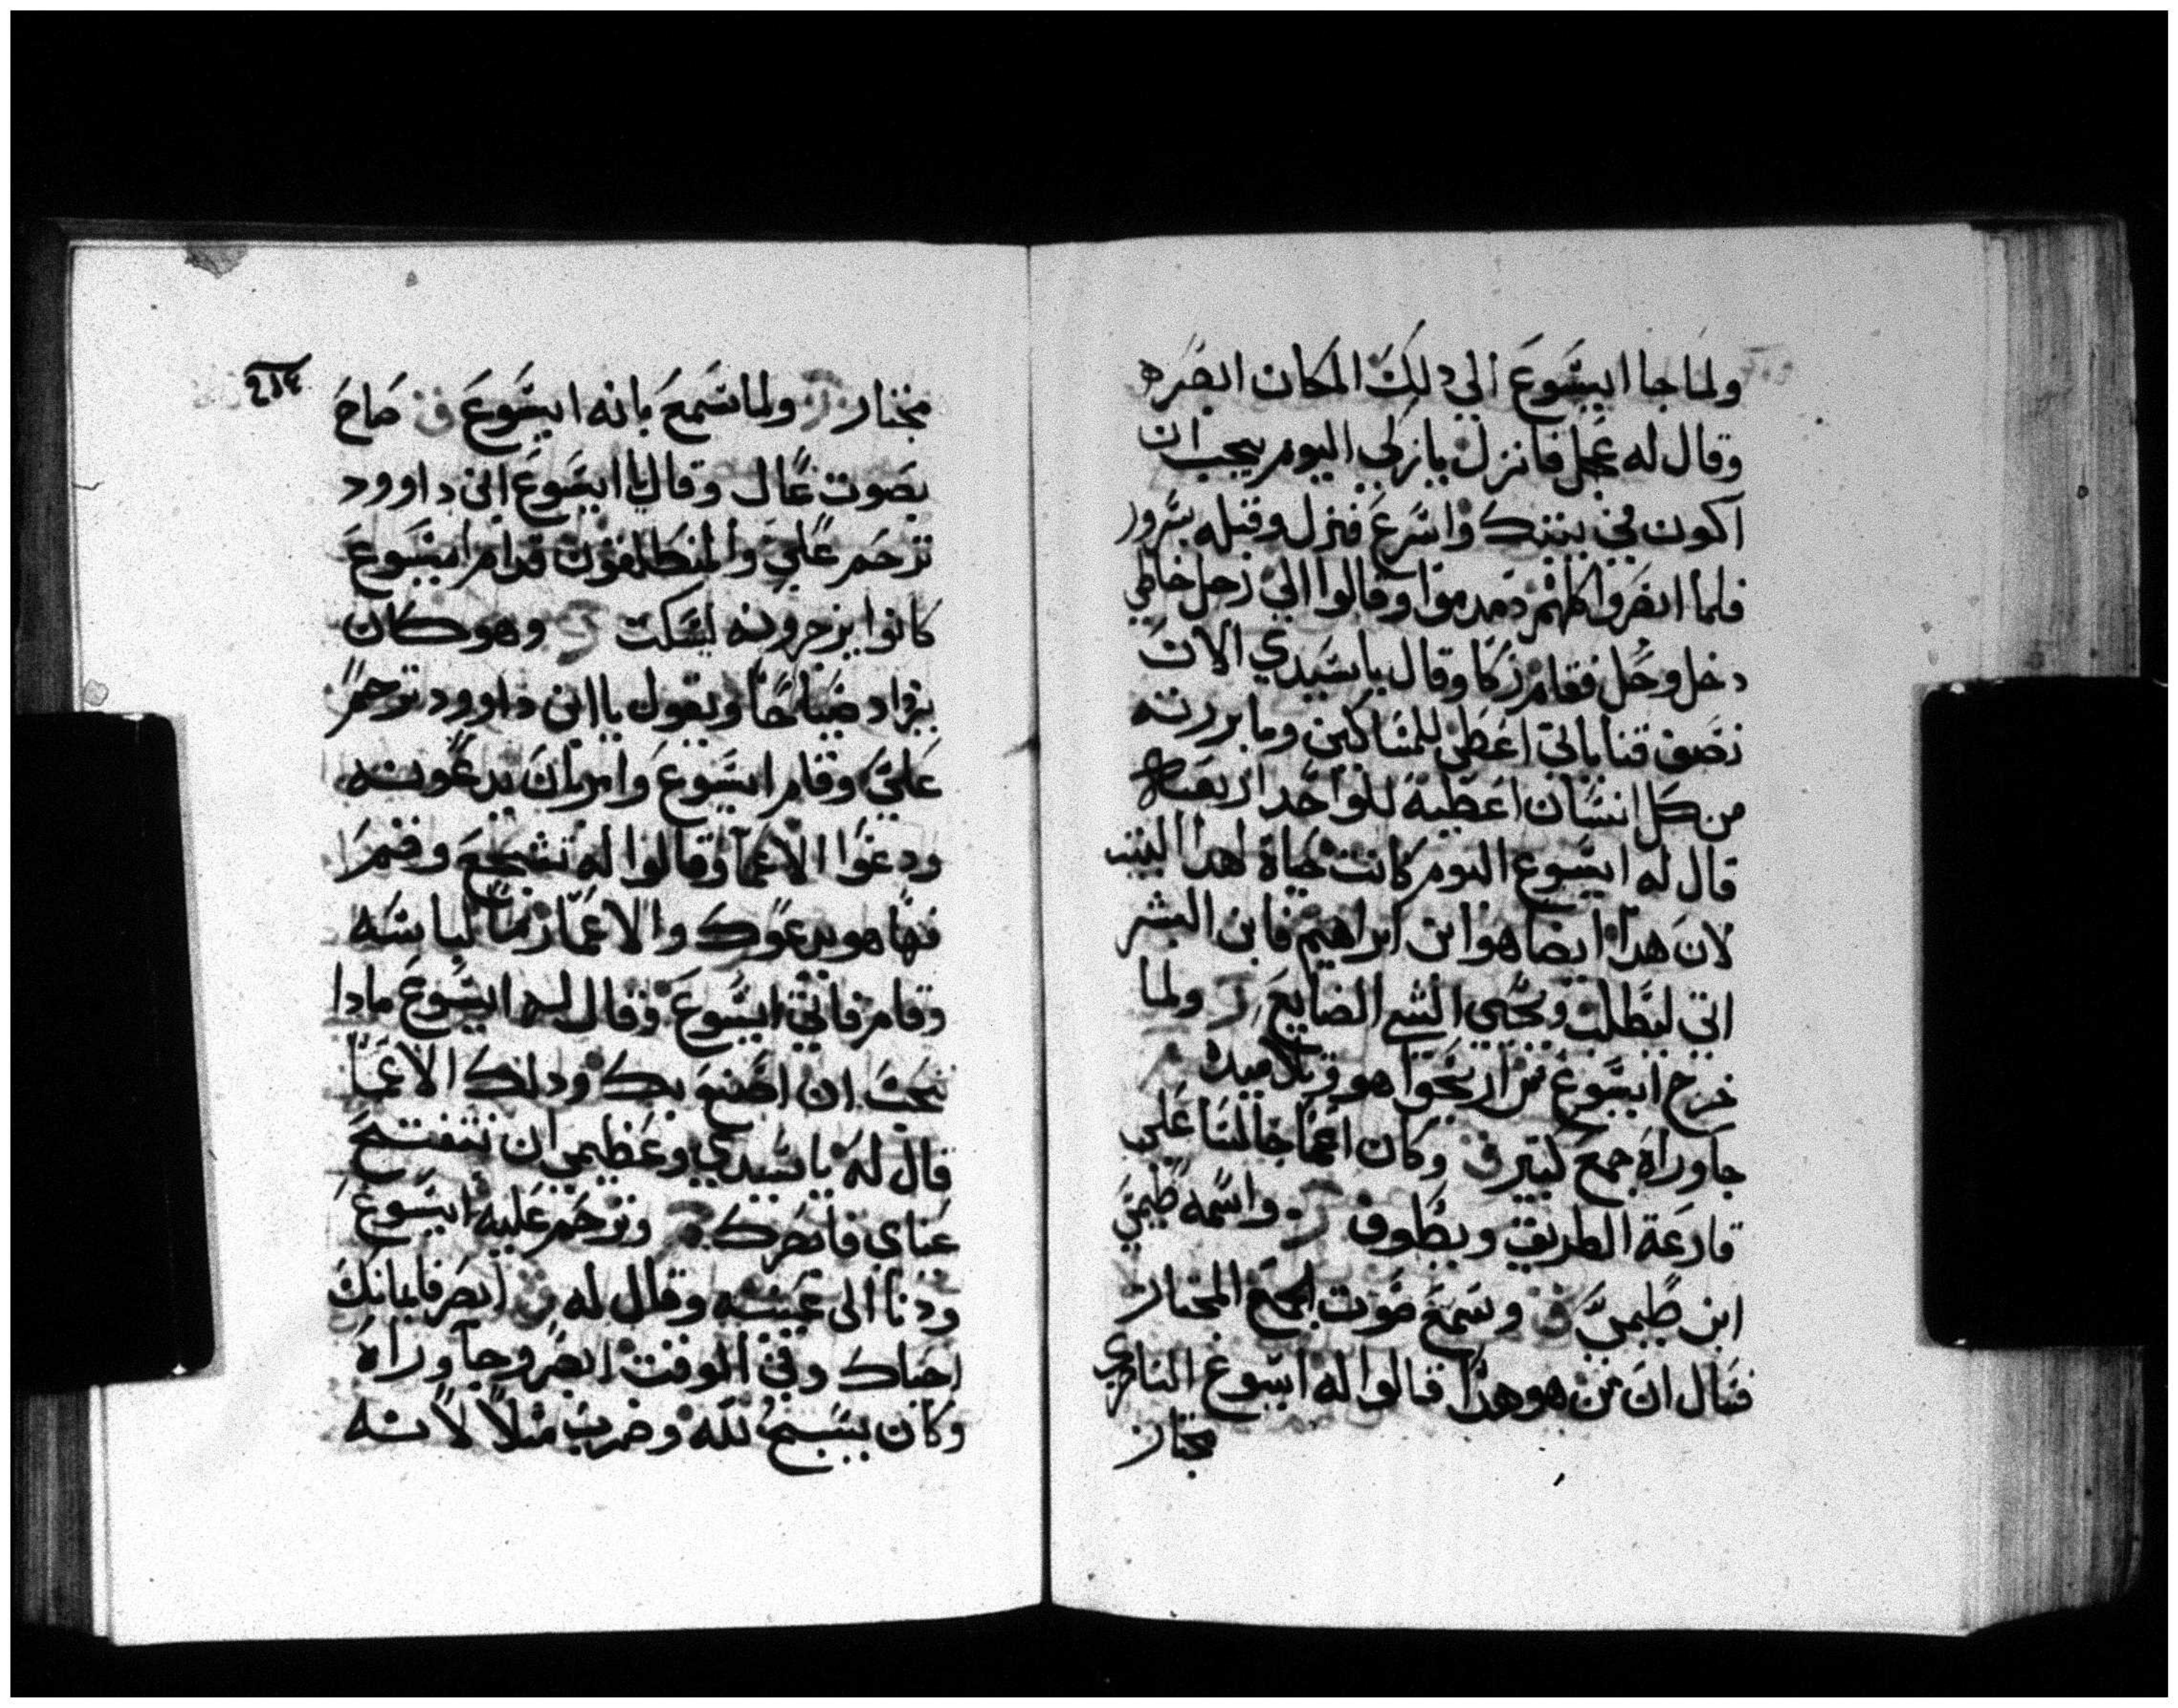 ولما جا ايسوع الي دلك المكان ابصره
وقال له عجل فانزل يا زكي اليوم يجب ان
اكون في بيتك واسرع فنزل وقبله بسرور
فلما ابصروا كلهم دمدموا وقالوا الي رجل خاطي
دخل وحل فقام زكا وقال يا سيدي الان
نصف قناياتي اعطي للمساكين وما بررته
من كل انسان اعطيه للواحد اربعه
قال له ايسوع اليوم كانت حياة لهدا البيت
لان هدا ايضا هو ابن ابراهيم فابن البشر
اتي ليطلب ويحيي الشي الضايع ولما
خرج ايسوع من اريحوا هو وتلاميده
جا وراه جمع كبير وكان اعما جالسا علي
قارعة الطريق ويطوف واسمه طيمي
ابن طيمي وسمع صوت الجمع المجتاز
فسال ان من هو هدا قالوا له ايسوع الناصري
مجتاز
٢١٤
مجتاز ولما سمع بانه ايسوع صاح
بصوت عال وقال يا ايسوع ابن داوود
ترحم علي والمنطلقون قدام ايسوع
كانوا يزجرونه ليسكت وهو كان
يزاد صياحا ويقول يا ابن داوود ترحم
علي وقام ايسوع وامر ان يدعونه
ودعوا الاعما وقالوا له تشجع وقم
فها هو يدعوك والاعما رما لباسه
وقام فاتي ايسوع وقال له ايسوع مادا
تحب ان اصنع بك ودلك الاعما
قال له يا سيدي وعظيمي ان تنفتح
عناي فابصرك وترحم عليه ايسوع
ودنا الى عينيه وقال له ابصر فايمانك
احياك وفي الوقت ابصر وجا وراه
وكان يسبح لله وضرب مثلا لانه